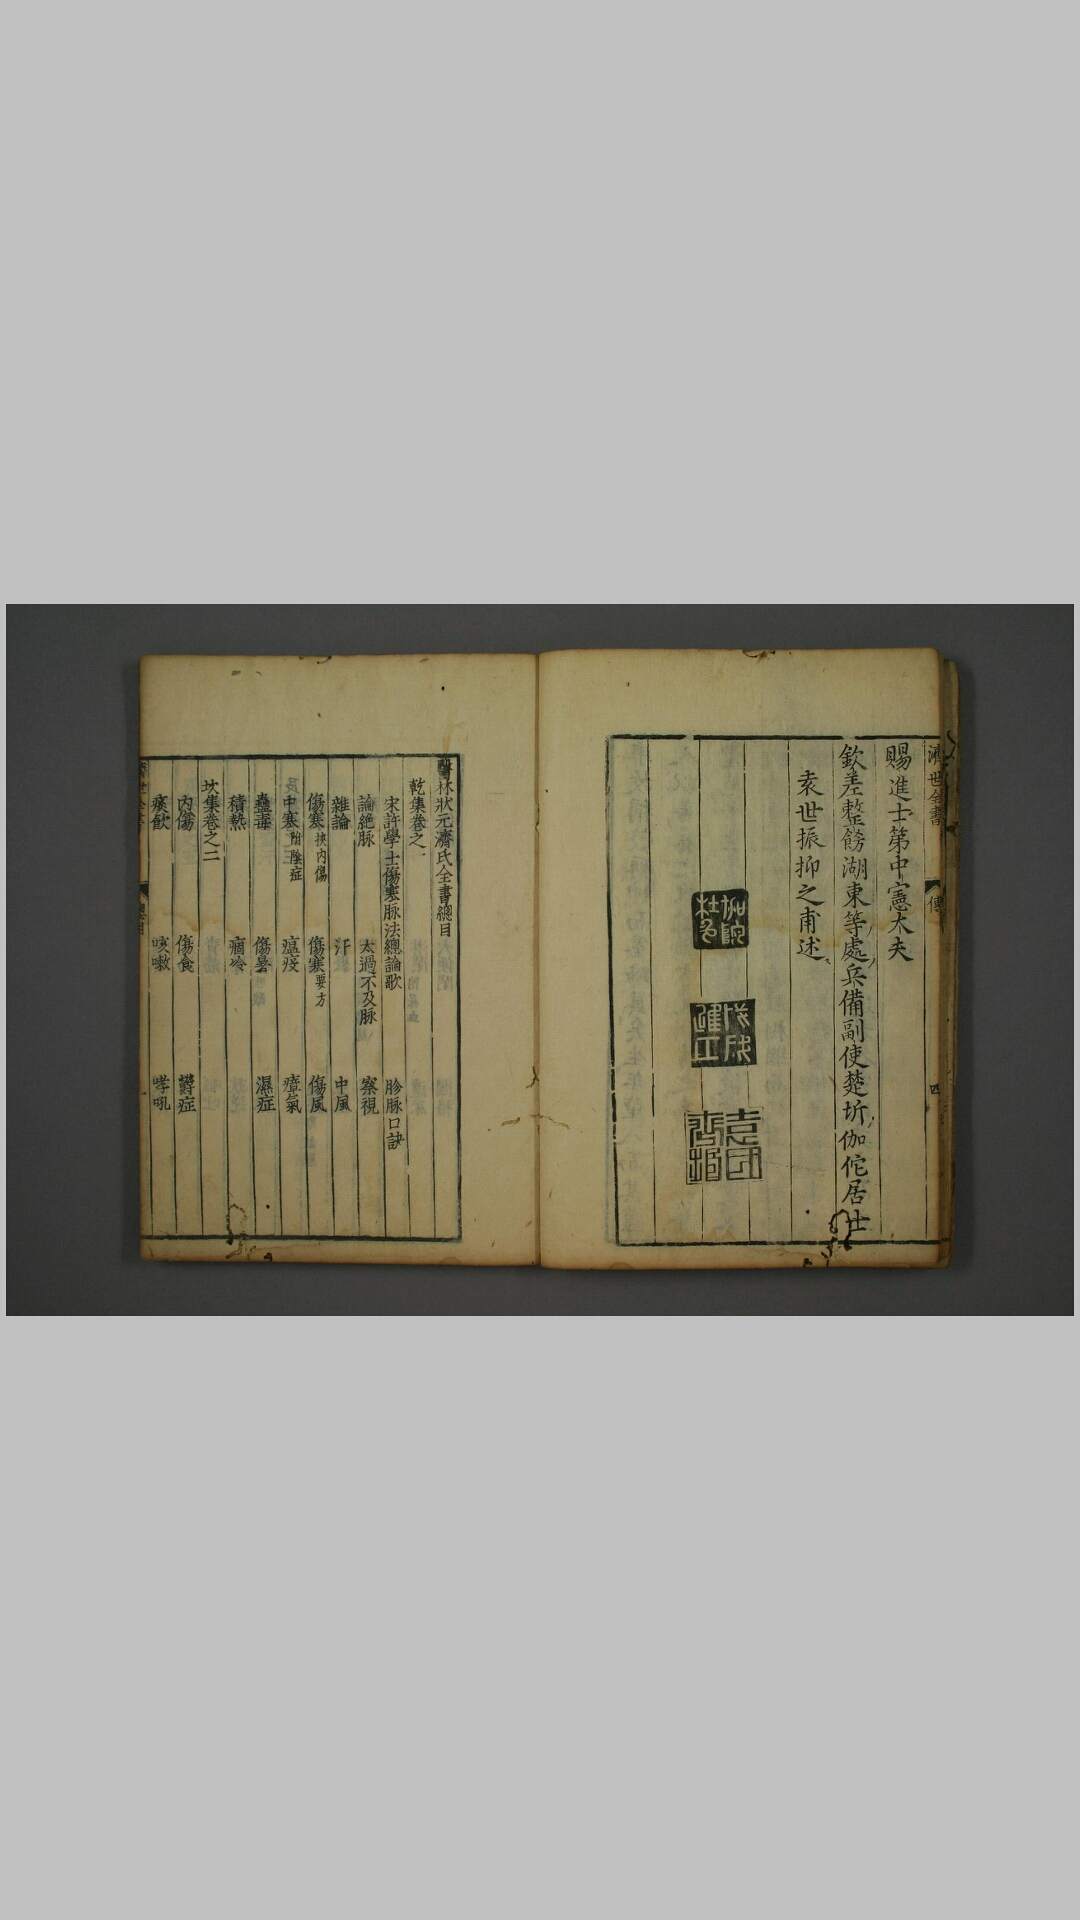 賜進士第中憲大夫
欽差整飭湖東等處兵備副使楚圻伽佗居士
袁世振抑之甫述
醫林狀元濟氏全書總目
乾集卷之一
宋許學士傷寒脉法總論歌 胗脉口訣
論絕脉 太過不及脉 察視
雜論 汗 中風
傷寒挾內傷 傷寒要方 傷風
中寒附陰症 瘟疫 瘴氣
蠱毒 傷暑 濕症
積熱 痼冷
坎集卷之二
內傷 傷食 欝症
痰飲 咳嗽 哮吼